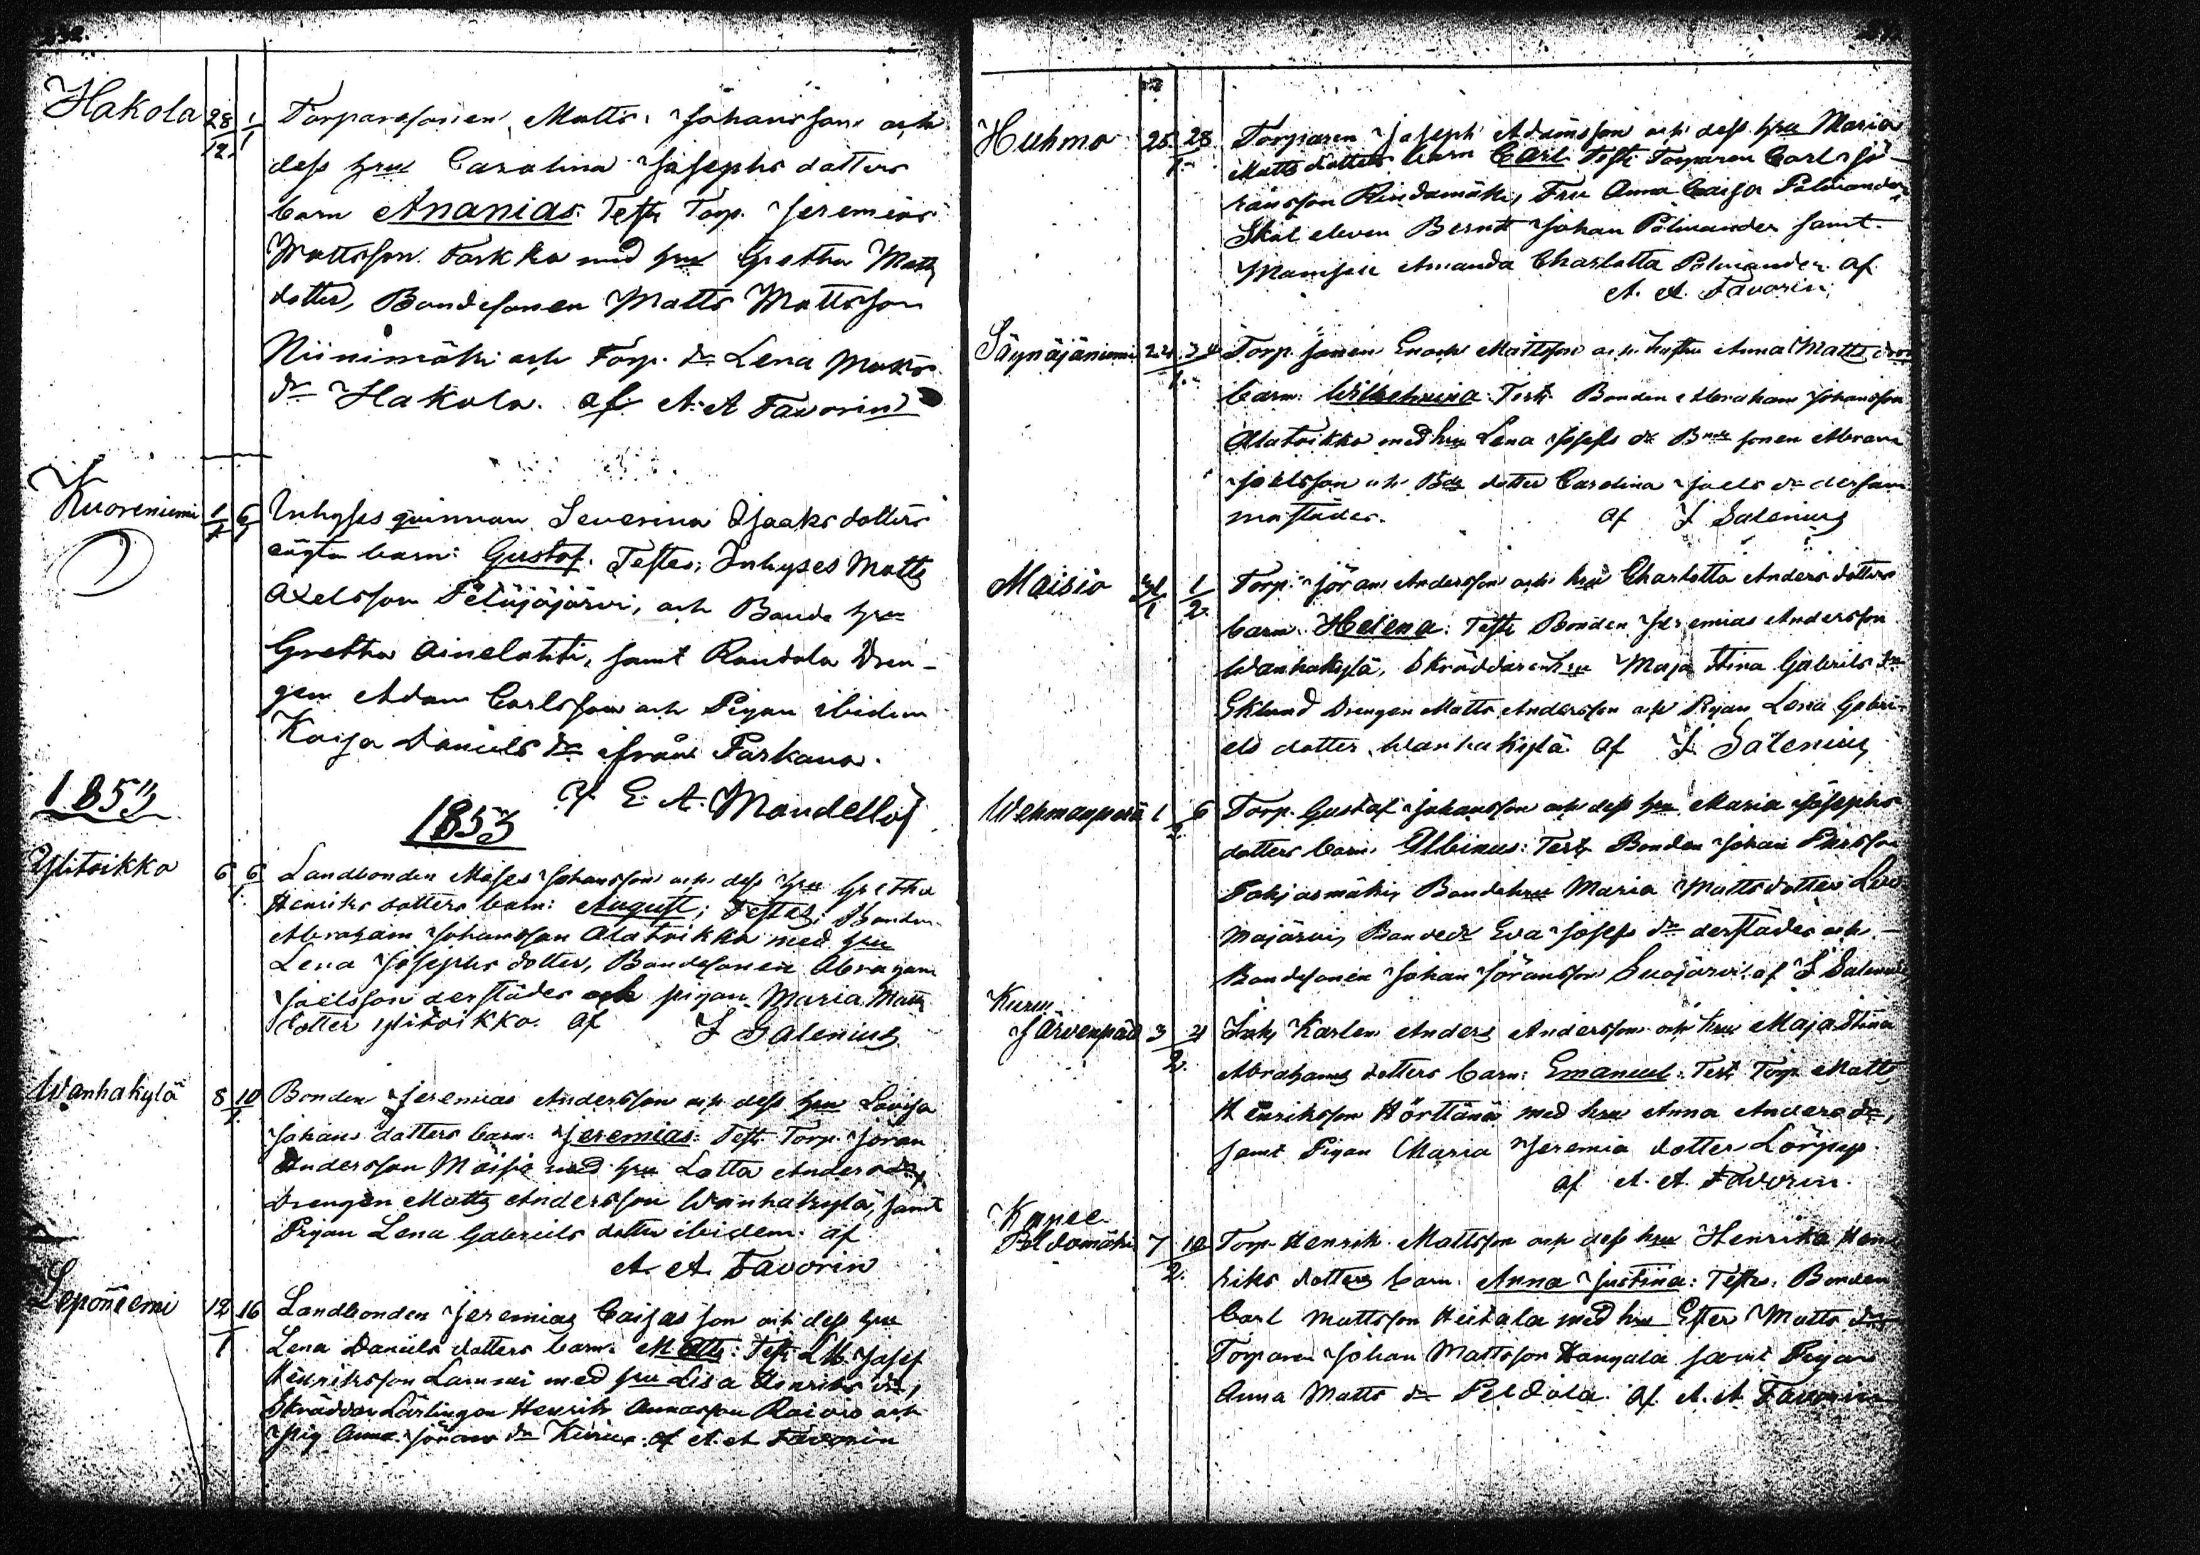 232.
Hakola 28/12 1/1 Torparesonen Matts Johansson och
dess hru Carolina Josephs dotters
barn Ananias. Test: Torp. Jeremias
Mattsson Farkko med hru Gretha Matts
dotter, Bondesonen Matts Mattsson
Niinimäki och Torp. dr Lena Matts
dr Hakola. af A. A Favorin
Kuoreniemi 1/1 6/1 Inhyses qvinnan Severina Isaaks dotters
oägta barn: Gustaf. Testes: Inhyses Matts
Axelsson Petäjäjärvi, och Bonde hru
Gretha Ainelahti, samt Randala Dren-
gen Adam Carlsson och Pigan ibidem
Kaisa Daniels dr ifrån Parkano.
af E. A. Mandellöf
1853
1853
Ylitoikko 6 6/1 Landbonden Moses Johansson och dess hru Gretha
Henriks dotters barn: August; Testes: Bonden
Abraham Johansson Alatoikko med hru
Lena Josephs dotter, Bondesonen Abraham
Joelsson derstädes och pigan Maria Matts
dotter Ylitoikko. af J Salenius
Wanhakylä 8 10/1 Bonden Jeremias Andersson och dess hru Lovisa
Johans dotters barn: Jeremias: Test: Torp. Jöran
Andersson Maisio med hru Lotta Anders dr,
Drengen Matts Andersson Wanhakylä, samt
Pigan Lena Gabriels dotter ibidem. af
A. A. Favorin
Leponiemi 12 16/1 Landbonden Jeremias Caisas son och dess hru
Lena Daniels dotters barn: Matts: Test: LB. Josef
Henriksson Lammi med hru Lisa Henriks dr,
Skräddar Lärlingen Henrik Annasson Raivio och
pig Anna Jörans dr af A. A Favorin
Huhmo 25 28/1 Torparen Joseph Adamsson och dess hru Maria
Matts dotters barn Carl. Test: Torparen Carl Jö-
ransson Rindamäki, Fru Anna Caisa Polviander
Skol eleven Bernt Johan Polviander samt
Mamsell Amanda Charlotta Polviander. af
A. A. Favorin
Säynäjäniemi 24 30/1 Torp. sonen Enock Mattsson och hustru Anna Matts drs
barn: Wilhelmina: Test: Bonden Abraham Johansson
Alatoikko med hru Lena Josefs dr Bnde sonen Abram
Joelsson och Bde dotter Carolina Joels dr dersam-
mastädes. af J Salenius
Maisio 31/1 1/2 Torp. Jöran Andersson och hru Charlotta Anders dotters
barn: Helena: Test: Bonden Jeremias Andersson
Wanhakylä, Skräddaren hru Maja Stina Gabriels dr
Eklund Drengen Matts Andersson och Pigan Lena Gabri-
els dotter Wanhakylä af J. Salenius
Wehmanperä 1 6/2 Torp. Gustaf Johansson och dess hru Maria Josephs
dotters barn: Albinus: Test: Bonden Johan
Pohjasmäki, Bondehru Maria Matts dotter
majärvi, Bondedr Eva Josefs dr derstädes och
Bondesonen Johan Jöransson Suojärvi. af J Salenius
Kuru
Järvenpää 3 4/2 Inh Karlen Anders Andersson och hru Maja Stina
Abrahams dotters barn: Emanuel: Test: Torp Matts
Henriksson Hörttänä med hru Anna Anders dr,
samt Pigan Maria Jeremia dotter Lörpys
af A. A. Favorin.
Peldomäki 7 10/2 Torp. Henrik Mattsson och dess hru Henrika Hen
riks dotters barn: Anna Justina: Test: Bonden
Carl Mattsson Heitala med hru Ester Matts dr
Torparen Johan Mattsson Kangala samt Pigan
Anna Matts dr Peldola. af A. A Favorin